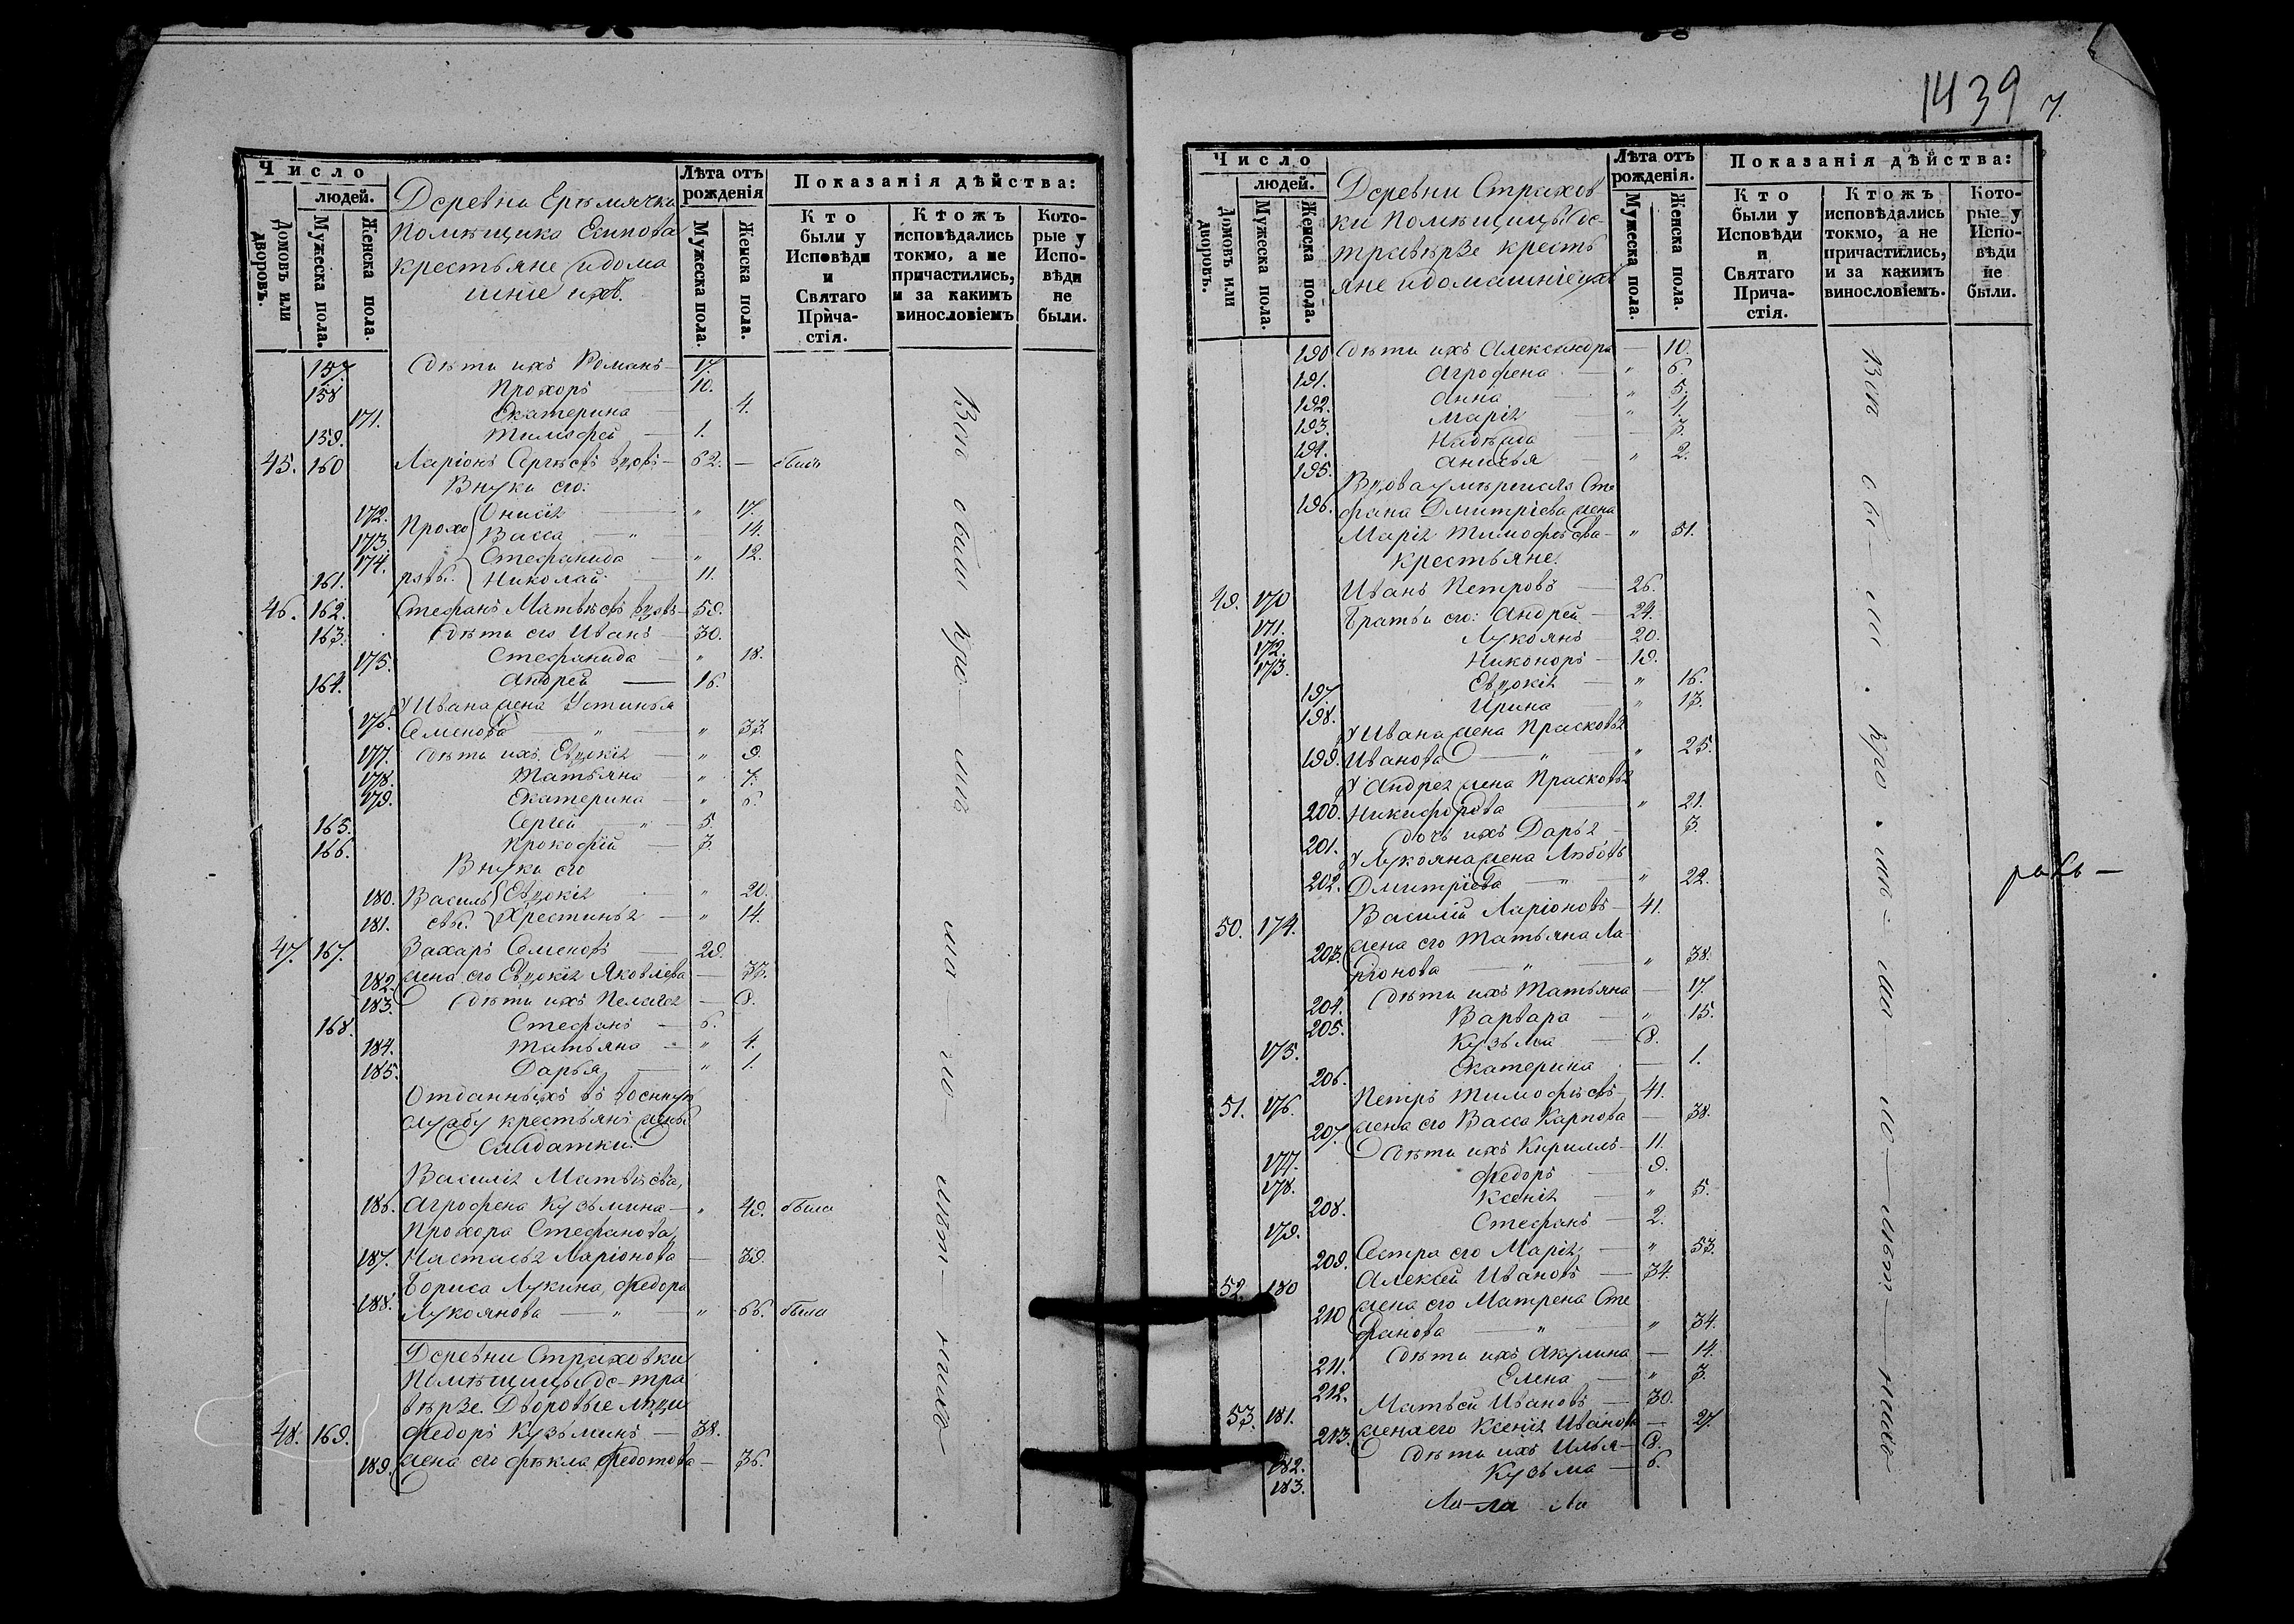 Число
людей.
Домовъ или дворовъ.
Мужеска пола.
Женска пола.
Деревни Ерѣмячки
Помѣщика Есипова
крестьяне и дома
шніе ихъ.
Лѣта отъ рожденія
Мужеска пола.
Женска пола.
Показанія дѣйства:
Кто были у Исповѣди и Святаго Прича-стія.
Ктожъ исповѣдались токмо, а не причастились, и за какимъ винословіемъ
Кото-рые у Испо-вѣди не были.
157. Дѣти ихъ Романъ — 17.
158 Прохоръ — 10.
171. Екатерина — 4.
159. Тимофей — 1.
45. 160 Ларіонъ Сергѣевъ вдовъ — 62. — былъ
Внуки его:
172. Онисія — " 17.
Прохо
173. Васса — " 14.
174. Стефанида — " 12.
ровы.
161. Николай — 11.
46. 162. Стефанъ Матвѣевъ вдовъ — 59.
163. Дѣти его Иванъ — 30.
175. Стефанида — " 18.
164. Андрей — 16.
У Ивана жена Устинья
176. Семенова — " — " 33.
177. Дѣти ихъ Евдокія — " 9.
178. Татьяна — " 7.
179. Екатерина — " 6.
165. Сергей — " — 5.
166. Прокофій — 3.
Внуки его
180. Василь Евдокія — " 20.
181. евы. Христинья — " 14.
47. 167. Захаръ Семеновъ — 29.
182. Жена его Евдокія Яковлева — 33.
183. Дѣти ихъ Пелагея — 8.
168. Стефанъ — 6.
184. Татьяна — " 4.
185. Дарья — " 1.
Отданныхъ въ военную
службу крестьянъ жены
Солдатки:
Василія Матвѣева,
186. Агрофена Кузьмина — " 49. была
Прохора Стефанова,
187. Настасья Ларіонова — 39.
Бориса Лукина, Федора
188. Лукоянова — " — " 66. была
Деревни Страховки
Помѣщицы Ос-тра
вѣрзе. Дворовые люди
48. 169. Федоръ Кузьминъ — 38.
189. Жена его Ѳекла Федотова — 36.
1439 7.
Число
людей.
Домовъ или дворовъ.
Мужеска пола.
Женска пола.
Деревни Страхов
ки Помѣщицы Ос-
травѣрзе кресть
яне и домашніе ихъ
Лѣта отъ рожденія.
Мужеска пола.
Женска пола.
Показанія дѣйства:
Кто были у Исповѣди и Святаго Прича-стія.
Ктожъ исповѣдались токмо, а не причастились, и за какимъ винословіемъ.
Кото-рые у Испо-вѣди не были.
190 Дѣти ихъ Александра — 10.
191. Агрофена — " 6.
192. Анна — " 5.
193. Марія — " 4.
194. Надѣжда — 3.
195. Анисья — " 2.
Вдова умершаго Сте
196. фана Дмитріева жена
Марія Тимофеѣва — " 51.
Крестьяне:
49. 170 Иванъ Петровъ — 26.
171. Братьи его: Андрей — 24.
172. Лукоянъ — 20.
173. Никоноръ — 19.
197. Евдокія — " 16.
198. Ирина — " 13.
У Ивана жена Прасковья
199. Иванова — " — " 25.
У Андрея жена Прасковья
200. Никифорова — " 21.
201. дочь ихъ Дарья — 3.
У Лукояна жена Любовь
202. Дмитріева — " — " 22.
50. 174. Василій Ларіоновъ — 41.
203. Жена его Татьяна Ла-
ріонова — " — " 38.
204. Дѣти ихъ Татьяна — 17.
205. Варвара — " 15.
175. Кузьма — 8.
206. Екатерина — 1.
51. 176. Петръ Тимофѣевъ — 41.
207. Жена его Васса Карпова — 38.
177. Дѣти ихъ Кириллъ — 11.
178. Федоръ — 9.
208. Ксенія — " 5.
179. Стефанъ — 2.
209. Сестра его Марія — " 53.
52. 180 Алексей Ивановъ — 34.
210 Жена его Матрена Сте
фанова — " — " 34.
211. Дѣти ихъ Акулина — 14.
212. Елена — " 3.
53. 181. Матвей Ивановъ — 30.
213. Жена его Ксенія Иванова — 27.
182. Дѣти ихъ Илья — 8.
183. Кузьма — 6.